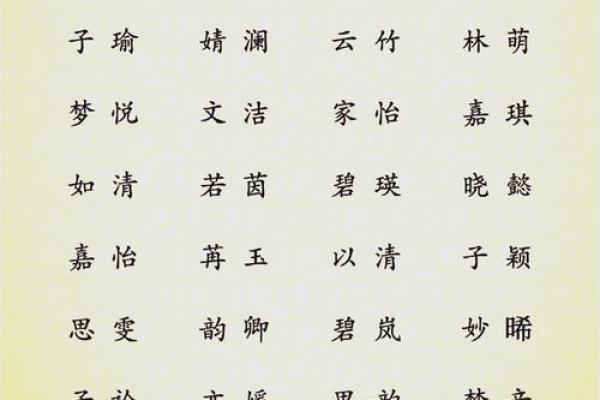 子瑜 婧澜 云竹 林萌
梦悦 文洁 家怡 嘉琪
如清 若茵 碧瑛 晓懿
嘉怡 苒玉 以清 子颖
思雯 韵卿 碧岚 妙晞